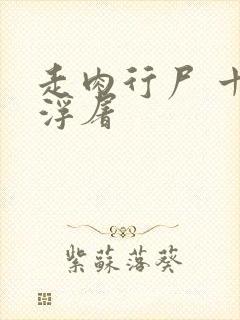 走肉行尸 十
浮屠
紫蘇落葵